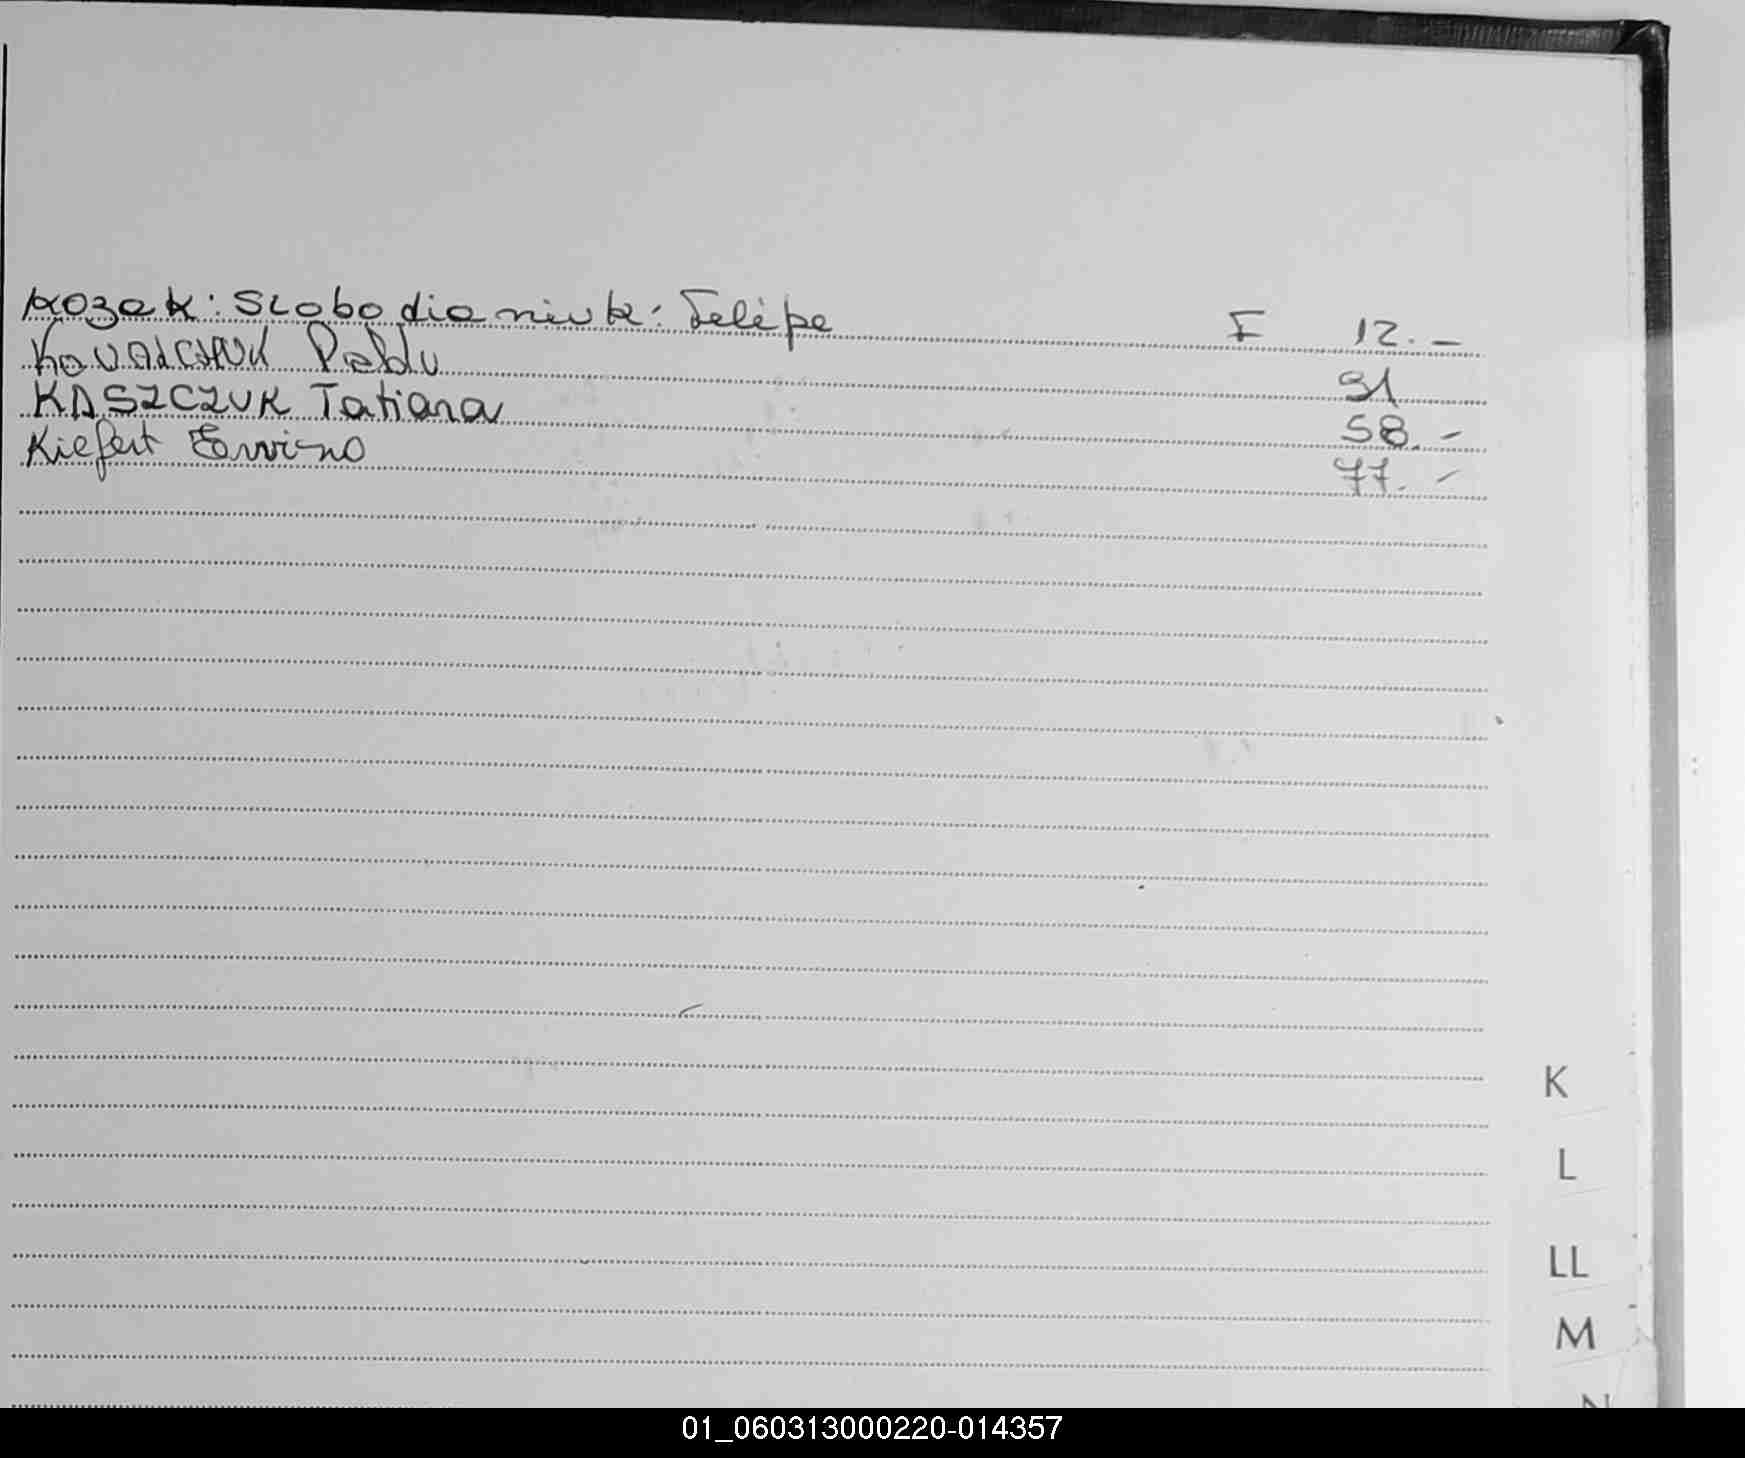 Kozak: Slobodianiuk: Felipe F 12.-
KOVALCHUK Pablo 31
KASZCZUK Tatiana 58.-
Kiefert Ervino 77.-
K
L
LL
M
N
01_060313000220-014357